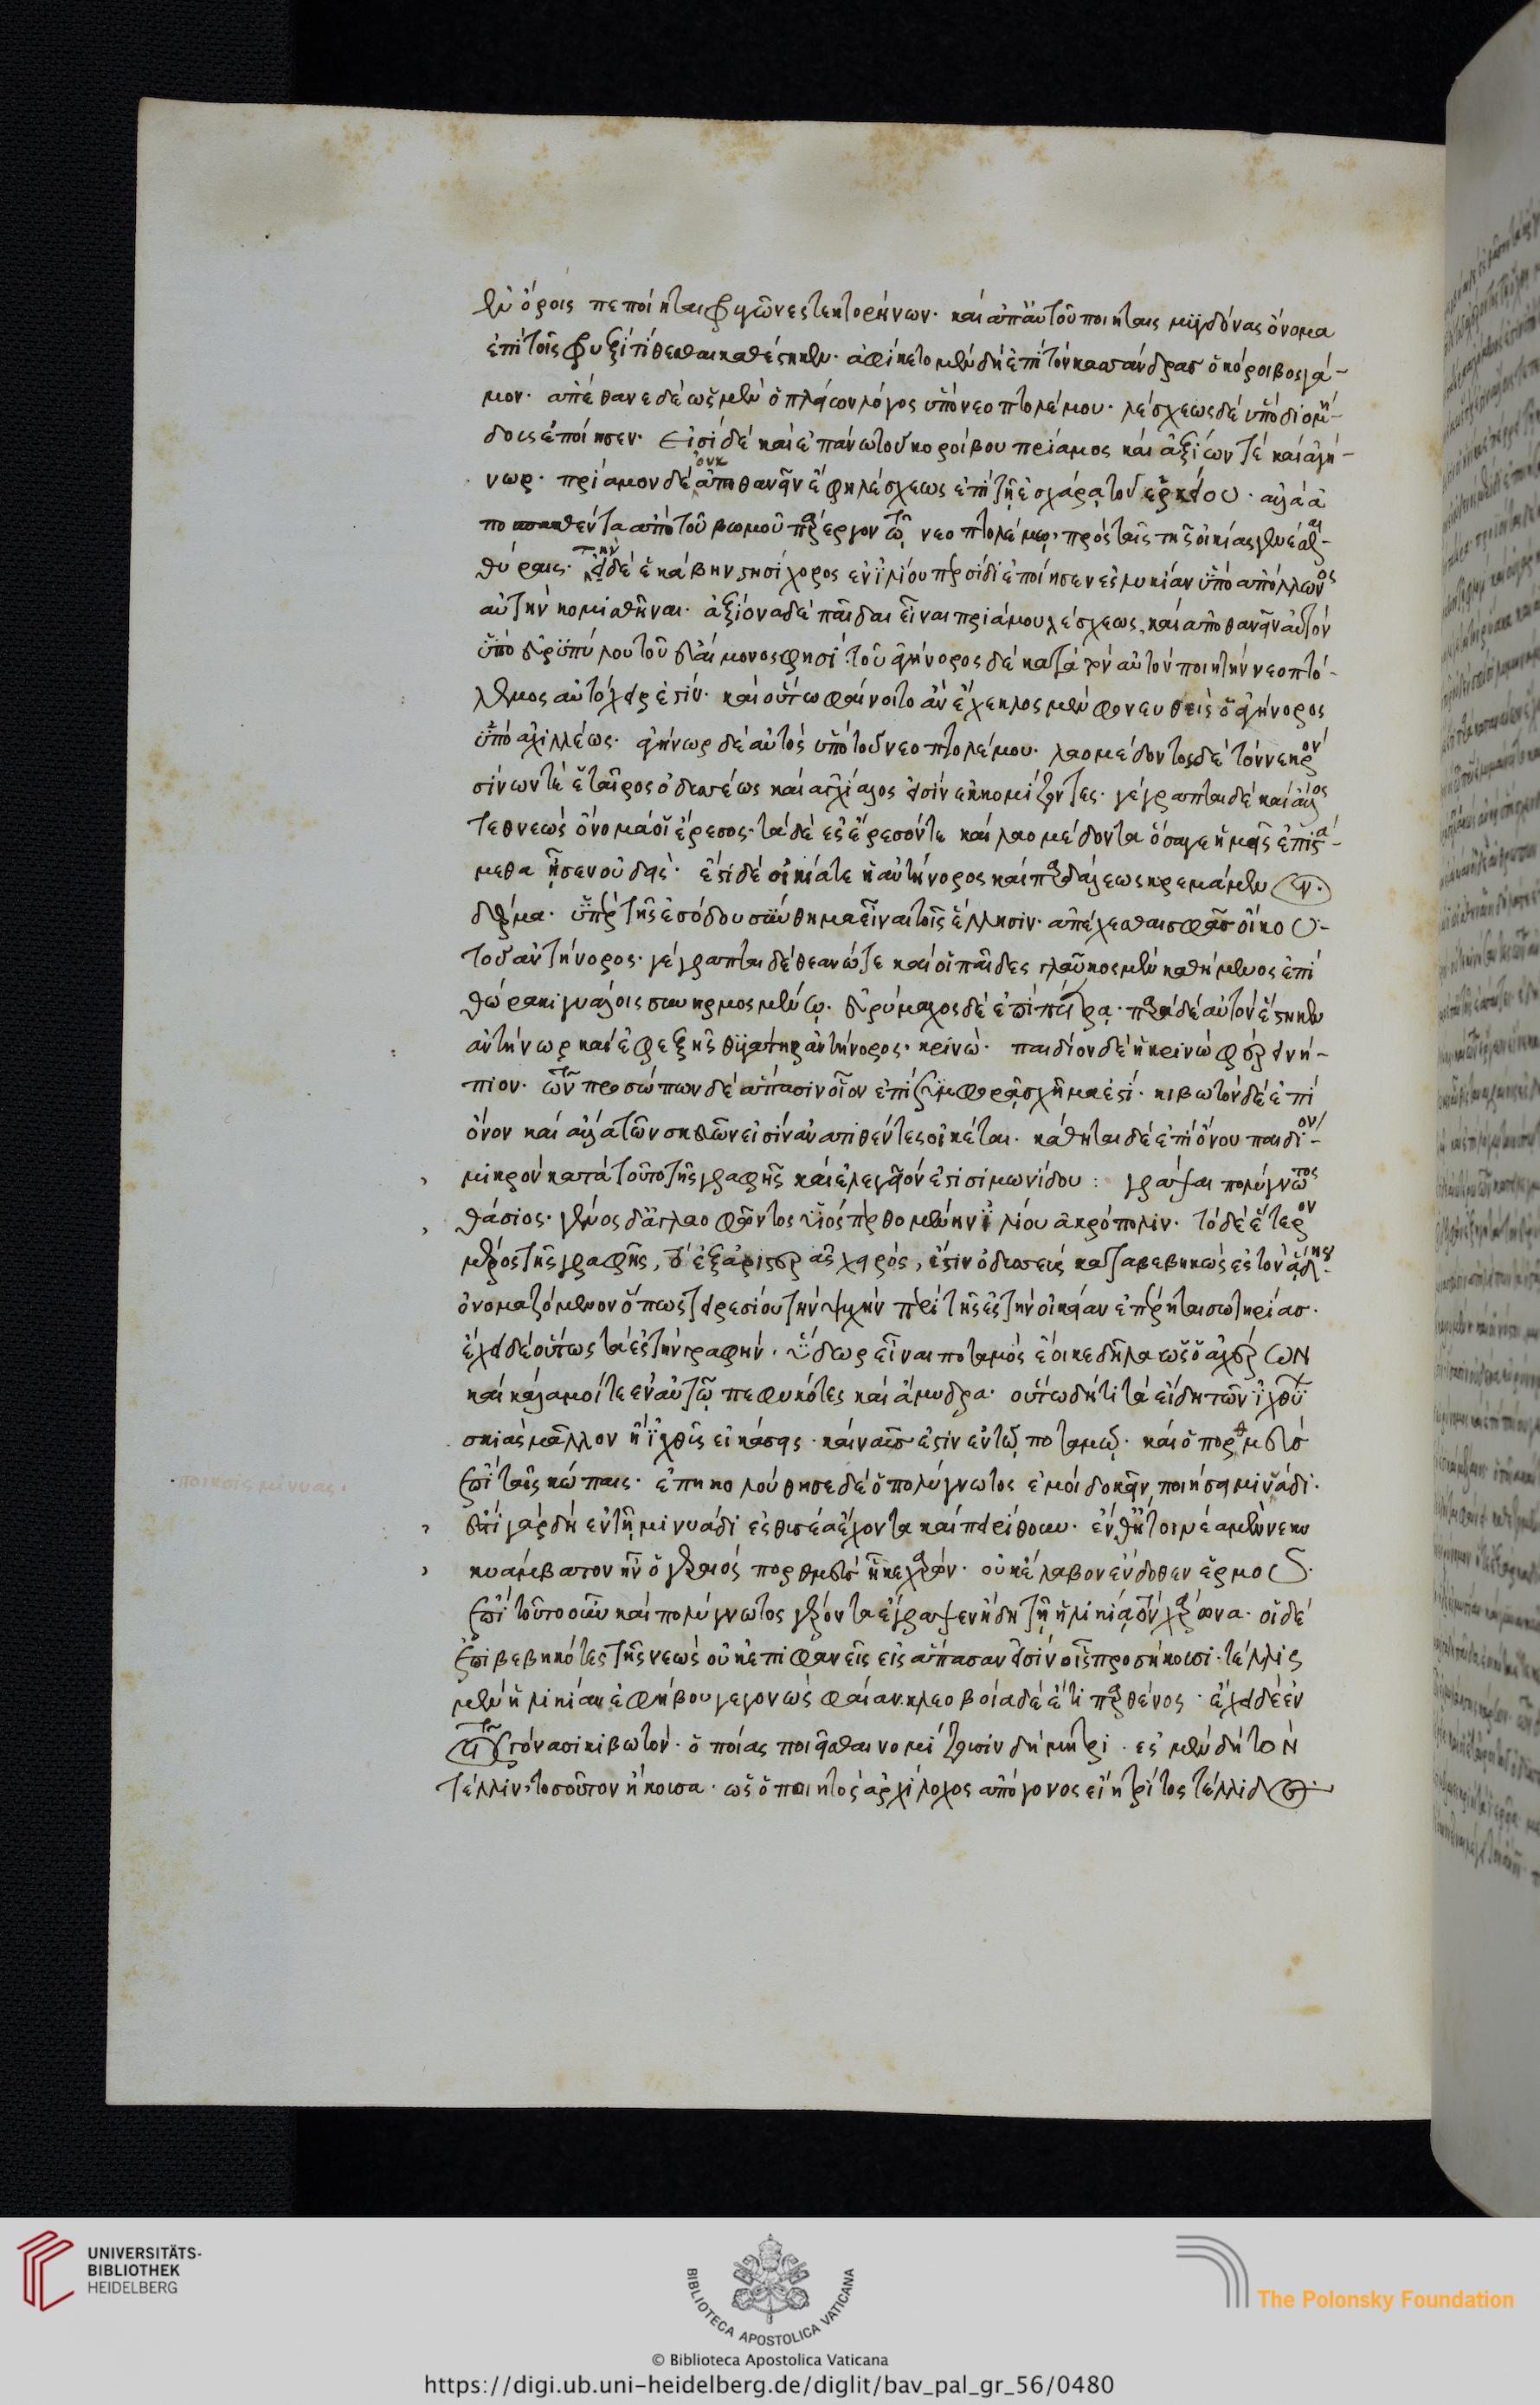 ἐν ὅροις πεποίηται φρυγῶν στεκτορήνων· καὶ ἀπ' αὐτοῦ ποιηταῖς μυγδόνας ὄνομα
ἐπὶ τοῖς φρυξὶ τίθεσθαι καθέστηκεν· ἀφίκετο μὲν δὴ ἐπὶ τὸν κασάνδρας ὁ κόροιβος γά-
μον· ἀπέθανε δὲ ὡς μὲν ὁ πλείων λόγος ὑπὸ νεοπτολέμου· λέσχεως δὲ ὑπὸ διομή-
δους ἐποίησεν· εἰσὶ δὲ καὶ ἐπάνω τοῦ κοροίβου πρίαμος καὶ ἀξίων τὲ καὶ ἀγή-
νωρ· πρίαμον δὲ οὐκ ἀποθανεῖν ἔφη λέσχεως ἐπὶ τῇ ἐσχάρᾳ τοῦ ἑρκείου· ἀλλὰ ἀ
ποσπασθέντα ἀπὸ τοῦ βωμοῦ πάρεργον τῷ νεοπτολέμῳ, πρὸς ταῖς τῆς οἰκίας γενέσθαι
θύραις· ἐς δὲ ἑκάβην στησίχορος ἐν ἰλίου πέρσιδι ἐποίησεν ἐς λυκίαν ὑπὸ ἀπόλλωνος
αὐτὴν κομισθῆναι· ἀξίονα δὲ παῖδα εἶναι πριάμου λέσχεως, καὶ ἀποθανεῖν αὐτὸν
ὑπὸ εὐρυπύλου τοῦ εὐαίμονος φησί· τοῦ ἀγήνορος δὲ κατὰ τὸν αὐτὸν ποιητὴν νεοπτό-
λεμος αὐτόχειρ ἐστίν· καὶ οὕτω φαίνοιτο ἂν ἔχεκλος μὲν φονευθεὶς ὁ ἀγήνορος
ὑπὸ ἀχιλλέως· ἀγήνωρ δὲ αὐτὸς ὑπὸ τοῦ νεοπτολέμου· λαομέδοντος δὲ τὸν νεκρὸν
σίνων τὲ ἑταῖρος ὀδυσσέως καὶ ἀγχίαλος εἰσὶν ἐκκομίζοντες· γέγραπται δὲ καὶ ἄλλος
τεθνεὼς ὄνομά οἱ ἔρεσος· τὰ δὲ ἐς ἔρεσόν τε καὶ λαομέδοντα ὅσα γε ἡμεῖς ἐπιστά-
μεθα ᾖσεν οὐδείς· ἔστι δὲ οἰκία τε ἡ ἀντήνορος καὶ παρδάλεως κρεμάμενον
δέρμα· ὑπὲρ τῆς ἐσόδου σύνθημα εἶναι τοῖς ἕλλησιν· ἀπέχεσθαι σφᾶς οἴκου
τοῦ ἀντήνορος· γέγραπται δὲ θεανώ τε καὶ οἱ παῖδες γλαῦκος μὲν καθήμενος ἐπὶ
θώρακι γυάλοις συνηρμοσμένῳ· εὐρύμαχος δὲ ἐπὶ πέτρᾳ· παρὰ δὲ αὐτὸν ἕστηκεν
ἀντήνωρ καὶ ἐφεξῆς θυγάτηρ ἀντήνορος· κρινώ· παιδίον δὲ ἡ κρινὼ φέρει νή-
πιον· τῶν προσώπων δὲ ἅπασιν οἷον ἐπὶ συμφορᾷ σχῆμά ἐστι· κιβωτὸν δὲ ἐπὶ
ὄνον καὶ ἄλλα τῶν σκευῶν εἰσὶν ἀνατιθέντες οἰκέται· κάθηται δὲ ἐπὶ ὄνου παιδίον
μικρὸν κατὰ τοῦτο τῆς γραφῆς καὶ ἐλεγεῖόν ἐστι σιμωνίδου: γράψαι πολύγνωτος
θάσιος· γένος δ' ἀγλαοφῶντος υἱὸς περθομένην ἰλίου ἀκρόπολιν· τὸ δὲ ἕτερον
μέρος τῆς γραφῆς, τὸ ἐξ ἀριστερᾶς χειρός, ἐστὶν ὀδυσσεὺς καταβεβηκὼς ἐς τὸν ᾅδην
ὀνομαζόμενον ὅπως τειρεσίου τὴν ψυχὴν περὶ τῆς ἐς τὴν οἰκείαν ἐπέρηται σωτηρίας·
ἔχει δὲ οὕτως τὰ ἐς τὴν γραφήν· ὕδωρ εἶναι ποταμὸς ἔοικε δῆλα ὡς ὁ ἀχέρων
καὶ κάλαμοί τε ἐν αὐτῷ πεφυκότες καὶ ἄμυδρα· οὕτω δή τι τὰ εἴδη τῶν ἰχθύ
σκιὰς μᾶλλον ἢ ἰχθῦς εἰκάσεις· καὶ ναῦς ἐστὶν ἐν τῷ ποταμῷ· καὶ ὁ πορθμεὺς
ἐπὶ ταῖς κώπαις· ἐπηκολούθησε δὲ ὁ πολύγνωτος ἐμοὶ δοκεῖν ποιήσει μινυάδι·
ἔστι γὰρ δὴ ἐν τῇ μινυάδι ἐς θησέα ἔχοντα καὶ πειρίθουν· ἔνθ' ἤτοι νέα μὲν νεκυ
κυάμβατον ἣν ὁ γεραιός πορθμεὺς ἦγε χάρων· οὐκ ἔλαβον ἔνδοθεν ὅρμους·
ἐπὶ τοῦτο οὖν καὶ πολύγνωτος γέροντα ἔγραψεν ἤδη τῇ ἡλικίᾳ τὸν χάρωνα· οἱ δὲ
ἐπιβεβηκότες τῆς νεὼς οὐκ ἐπιφανεῖς εἰς ἅπασαν εἰσὶν οἷς προσήκουσι· τέλλις
μὲν ἡλικίαν ἐφήβου γεγονὼς φαίαν, κλεοβοία δὲ ἔτι παρθένος· ἔχει δὲ ἐν
τοῖς γόνασι κιβωτόν· ὁποίας ποιεῖσθαι νομίζουσιν δήμητρι· ἐς μὲν δὴ τὸν
τέλλιν, τοσοῦτον ἤκουσα· ὡς ὁ ποιητὸς ἀρχίλοχος ἀπόγονος εἴη τρίτος τέλλιδος
ποίησις μινυας.
UNIVERSITÄTS-
BIBLIOTHEK
HEIDELBERG
BIBLIOTECA APOSTOLICA VATICANA
The Polonsky Foundation
© Biblioteca Apostolica Vaticana
https://digi.ub.uni-heidelberg.de/diglit/bav_pal_gr_56/0480